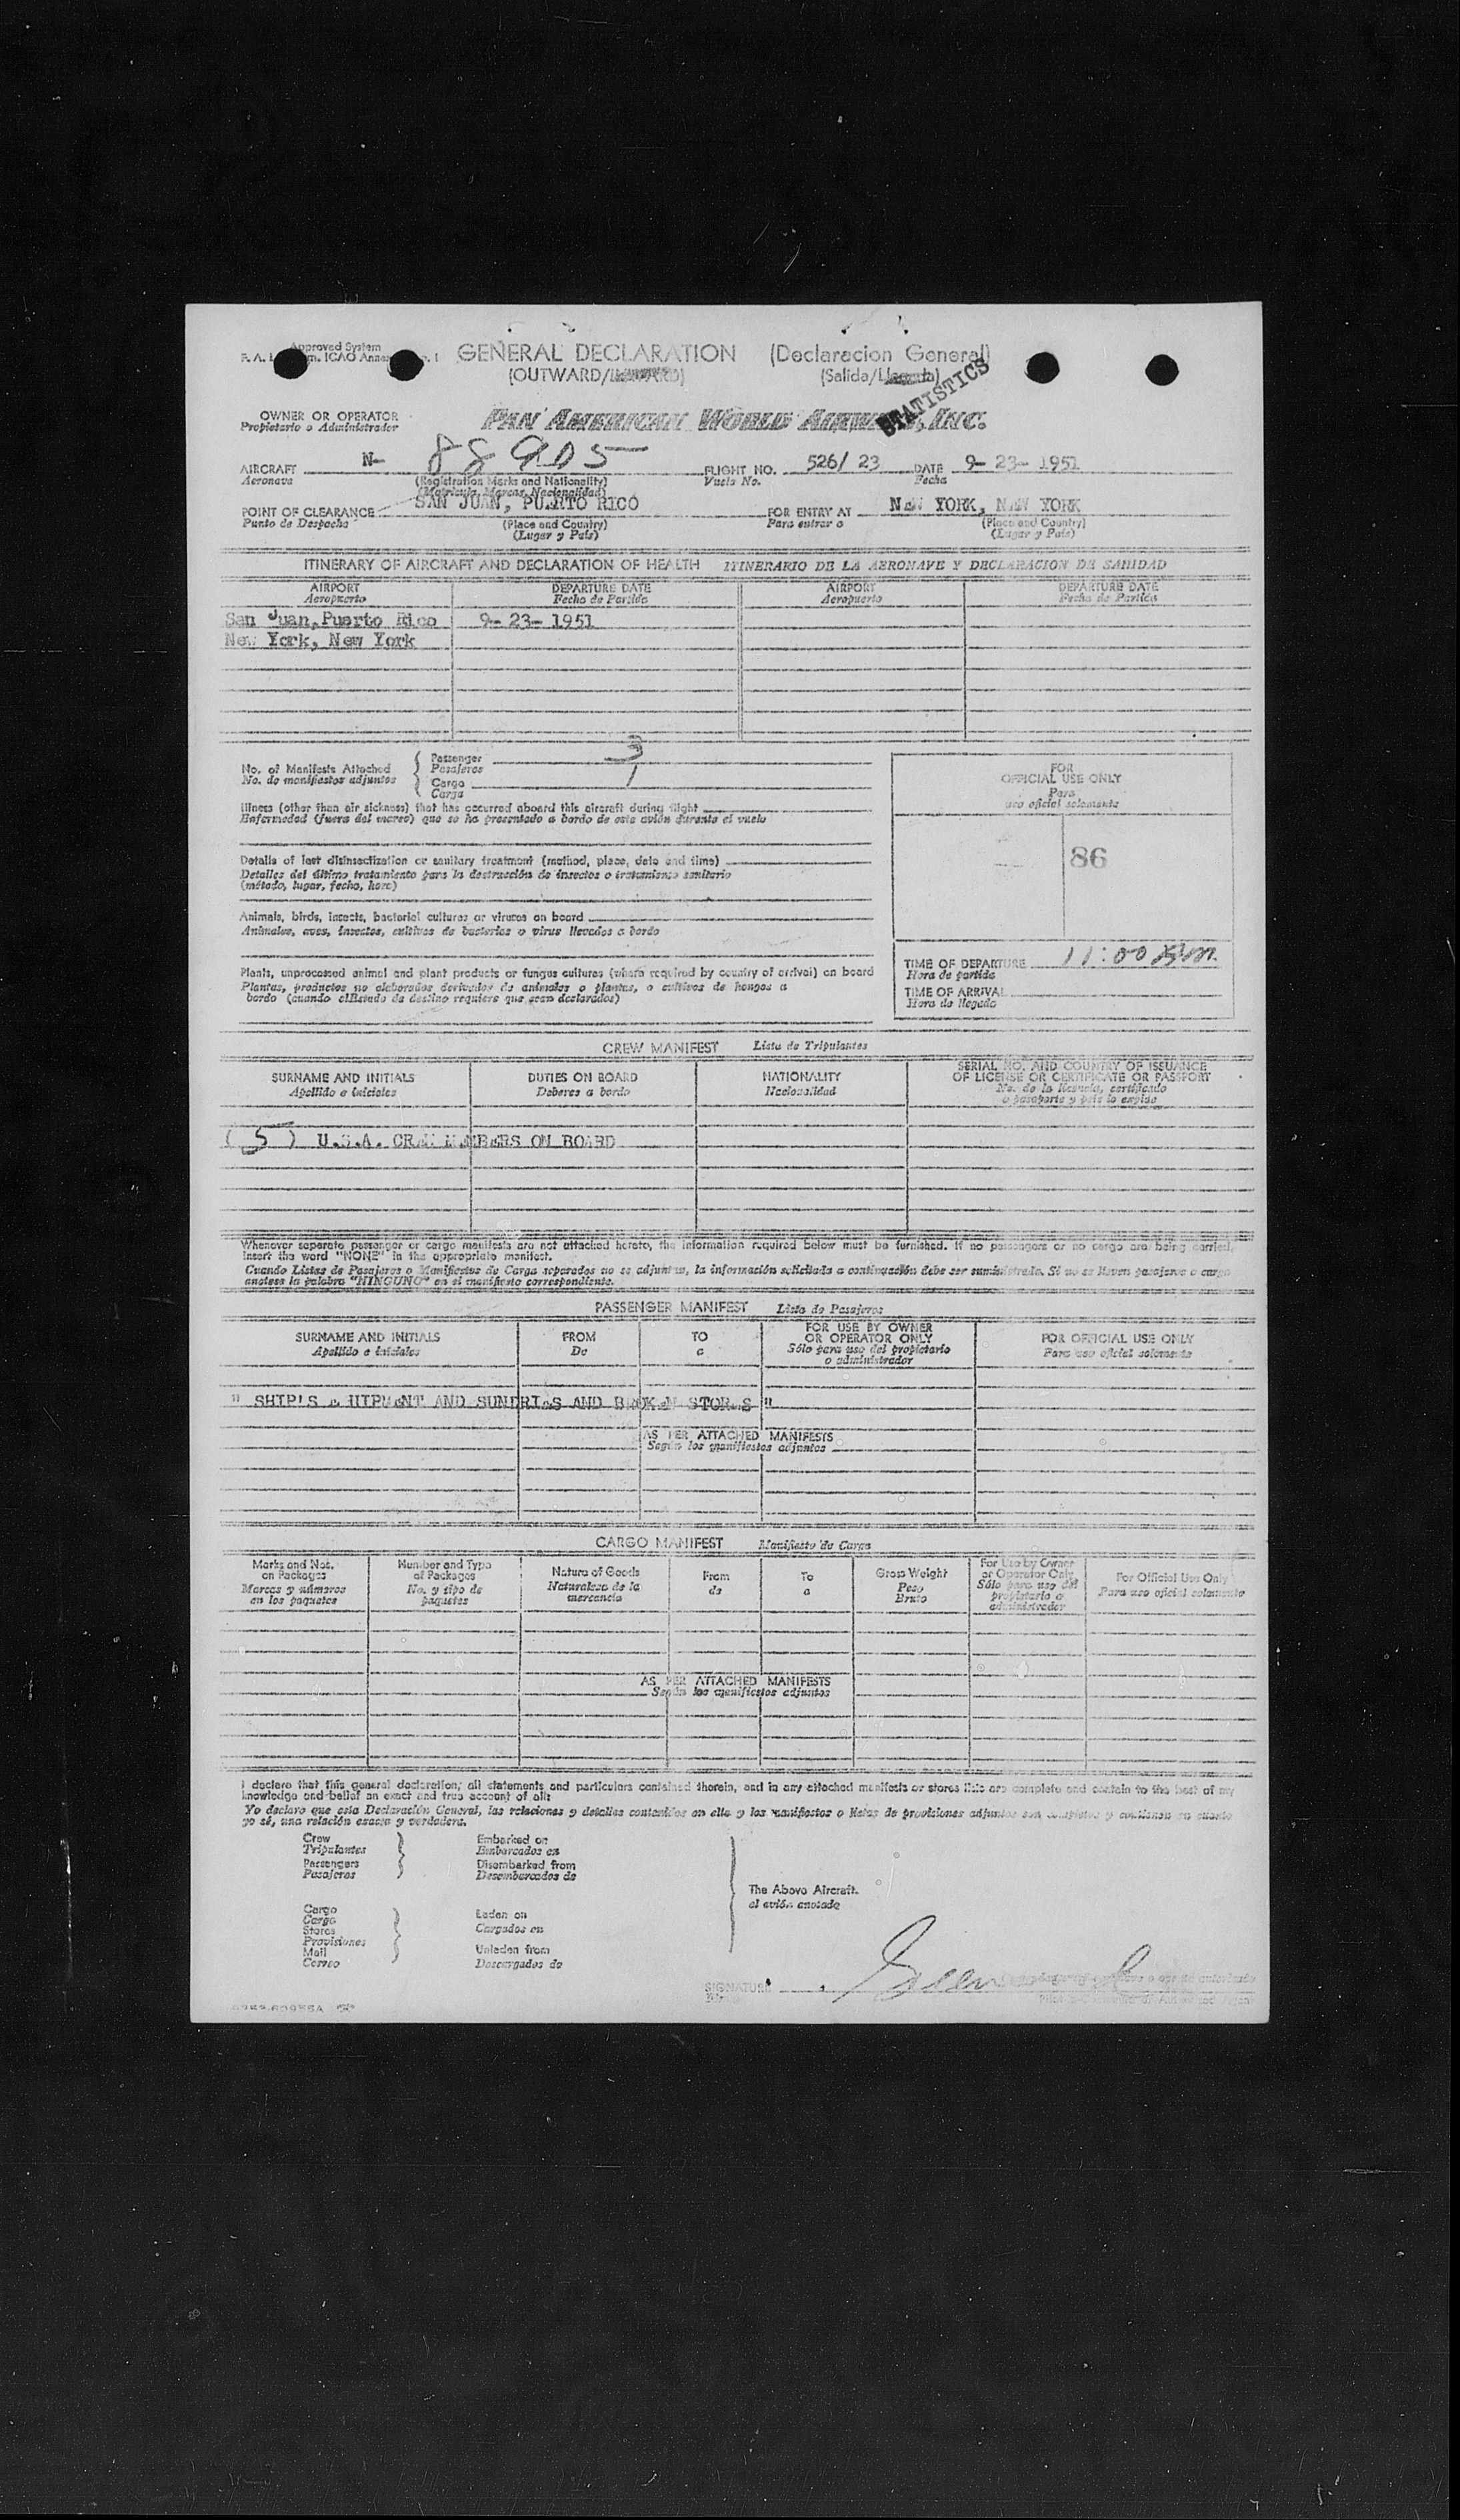 Approved System
GENERAL DECLARATION (Declaracion General)
(OUTWARD/INWARD) (Salida/Llegada)
STATISTICS
OWNER OR OPERATOR
Propietario o Administrador
PAN AMERICAN WORLD AIRWAYS, INC.
AIRCRAFT N- 88905 FLIGHT NO. 526/ 23 DATE 9- 23- 1951
Aeronave (Registration Marks and Nationality) Vuelo No. Fecha
(Matricula, Marcas, Nacionalidad)
POINT OF CLEARANCE SAN JUAN, PUERTO RICO FOR ENTRY AT NEW YORK, NEW YORK
Punto de Despacho (Place and Country) Para entrar a (Place and Country)
(Lugar y País) (Lugar y País)
ITINERARY OF AIRCRAFT AND DECLARATION OF HEALTH ITINERARIO DE LA AERONAVE Y DECLARACION DE SANIDAD
AIRPORT DEPARTURE DATE AIRPORT DEPARTURE DATE
Aeropuerto Fecha de Partida Aeropuerto Fecha de Partida
San Juan, Puerto Rico 9- 23- 1951
New York, New York
No. of Manifests Attached Passenger 3
No. de manifiestos adjuntos Pasajeros
Cargo 1
Carga
FOR
OFFICIAL USE ONLY
Para
uso oficial solamente
Illness (other than air sickness) that has occurred aboard this aircraft during flight
Enfermedad (fuera del mareo) que se ha presentado a bordo de este avión durante el vuelo
86
Details of last disinsectization or sanitary treatment (method, place, date and time)
Detalles del último tratamiento para la destrucción de insectos o tratamiento sanitario
(método, lugar, fecha, hora)
Animals, birds, insects, bacterial cultures or viruses on board
Animales, aves, insectos, cultivos de bacterias o virus llevados a bordo
TIME OF DEPARTURE 11:00
Hora de partida
TIME OF ARRIVAL
Hora de llegada
Plants, unprocessed animal and plant products or fungus cultures (where required by country of arrival) on board
Plantas, productos no elaborados derivados de animales o plantas, o cultivos de hongos a
bordo (cuando elEstado de destino requiere que sean declarados)
CREW MANIFEST Lista de Tripulantes
SURNAME AND INITIALS DUTIES ON BOARD NATIONALITY SERIAL NO. AND COUNTRY OF ISSUANCE
OF LICENSE OR CERTIFICATE OR PASSPORT
Apellido e iniciales Deberes a bordo Nacionalidad No. de la licencia, certificado
o pasaporte y país lo expide
( 5 ) U.S.A. CREW MEMBERS ON BOARD
Whenever separate passenger or cargo manifests are not attached hereto, the information required below must be furnished. If no passengers or no cargo are being carried,
insert the word "NONE" in the appropriate manifest.
Cuando Listas de Pasajeros o Manifiestos de Carga separados no se adjuntan, la información solicitada a continuación debe ser suministrada. Si no se lleven pasajeros o carga
anotese la palabra "NINGUNO" en el manifiesto correspondiente.
PASSENGER MANIFEST Lista de Pasajeros
SURNAME AND INITIALS FROM TO FOR USE BY OWNER
OR OPERATOR ONLY FOR OFFICIAL USE ONLY
Apellido e iniciales De a Sólo para uso del propietario
o administrador Para uso oficial solamente
" SHIP'S EHIPMENT AND SUNDRIES AND BROKEN STORES "
AS PER ATTACHED MANIFESTS
Según los manifiestos adjuntos
CARGO MANIFEST Manifiesto de Carga
Marks and Nos.
on Packages
Marcas y números
en los paquetes
Number and Type
of Packages
No. y tipo de
paquetes
Nature of Goods
Naturaleza de la
mercancia
From
de
To
a
Gross Weight
Peso
Bruto
For Use by Owner
or Operator Only
Sólo para uso del
propietario o
administrador
For Official Use Only
Para uso oficial solamente
AS PER ATTACHED MANIFESTS
Según los manifiestos adjuntos
I declare that this general declaration, all statements and particulars contained therein, and in any attached manifests or stores lists are complete and contain to the best of my
knowledge and belief an exact and true account of all:
Yo declaro que esta Declaración General, las relaciones y detalles contenidos en ella y los manifiestos o listas de provisiones adjuntos son completos y contienen en cuanto
yo sé, una relación exacta y verdadera.
Crew
Tripulantes
Passengers
Pasajeros
Embarked on
Embarcados en
Disembarked from
Desembarcados de
The Above Aircraft.
el avión anotado
Cargo
Carga
Stores
Provisiones
Mail
Correo
Laden on
Cargados en
Unladen from
Descargados de
SIGNATURE